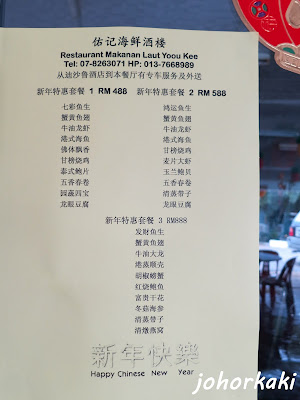 佑记海鲜酒楼
Restaurant Makanan Laut Yoou Kee
Tel: 07-8263071 HP: 013-7668989
从迪沙鲁酒店到本餐厅有专车服务及外送
新年特惠套餐 1 RM 488
七彩鱼生
蟹黄鱼翅
牛油龙虾
港式海鱼
佛钵飘香
甘榜烧鸡
泰式鲍片
五香春卷
园蔬四宝
龙眼豆腐
新年特惠套餐 2 RM 588
鸿运鱼生
蟹黄鱼翅
牛油龙虾
港式海鱼
甘榜烧鸡
麦片大虾
玉兰鲍贝
五香春卷
清蒸带子
龙眼豆腐
新年特惠套餐 3 RM888
发财鱼生
蟹黄鱼翅
牛油大龙
港蒸顺壳
胡椒螃蟹
红烧鲍鱼
富贵干花
冬菇海参
清蒸带子
清燉燕窝
新年快樂
Happy Chinese New Year
johorkaki